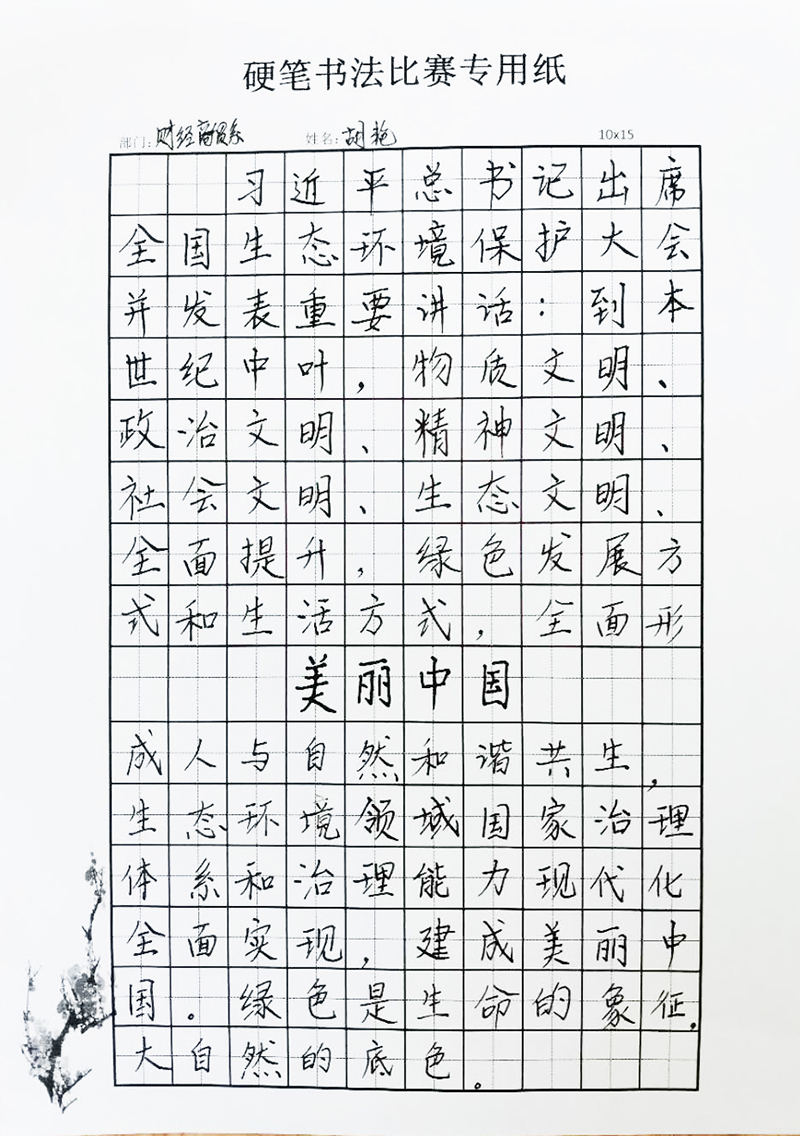 硬笔书法比赛专用纸
部门:财经商贸系 姓名:胡艳 10x15
习近平总书记出席
全国生态环境保护大会
并发表重要讲话:到本
世纪中叶,物质文明、
政治文明、精神文明、
社会文明、生态文明、
全面提升,绿色发展方
式和生活方式,全面形
美丽中国
成人与自然和谐共生,
生态环境领域国家治理
体系和治理能力现代化
全面实现,建成美丽中
国。绿色是生命的象征.
大自然的底色。